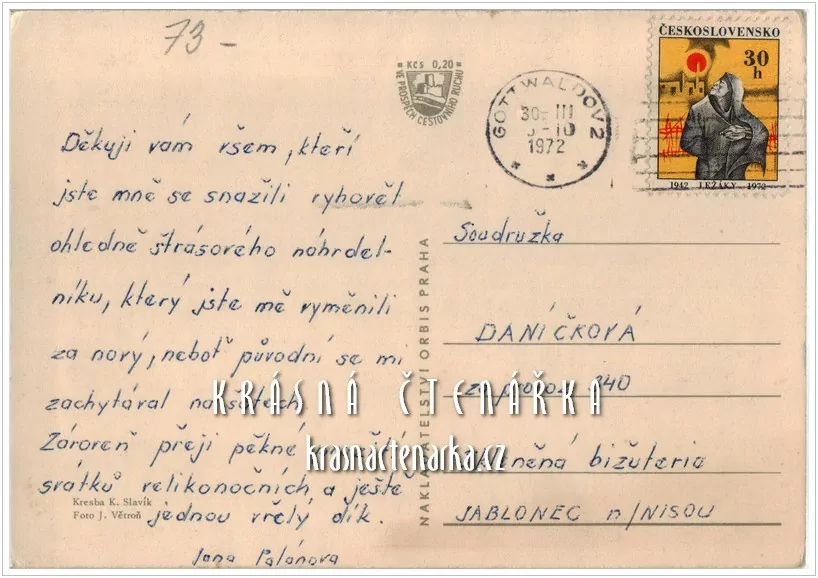 73-
Kčs 0,20
VE PROSPĚCH CESTOVNÍHO RUCHU
GOTTWALDOV 2
30. III
1972
ČESKOSLOVENSKO
30 h
1942 LEŽÁKY 1972
Děkuji vám všem, kteří
jste mně se snažili vyhovět
ohledně štrásového náhrdel-
níku, který jste mě vyměnili
za nový, neboť původní se mi
zachytával na šatech.
Zároveň přeji pěkné
svátků velikonočních a ještě
jednou vřelý dík.
Jana
Kresba K. Slavík
Foto J. Větroň
NAKLADATELSTVÍ ORBIS PRAHA
Soudružka
DANÍČKOVÁ
340
skleněná bižuterie
JABLONEC n/NISOU
KRÁSNÁ ČTENÁŘKA
krasnactenarka.cz